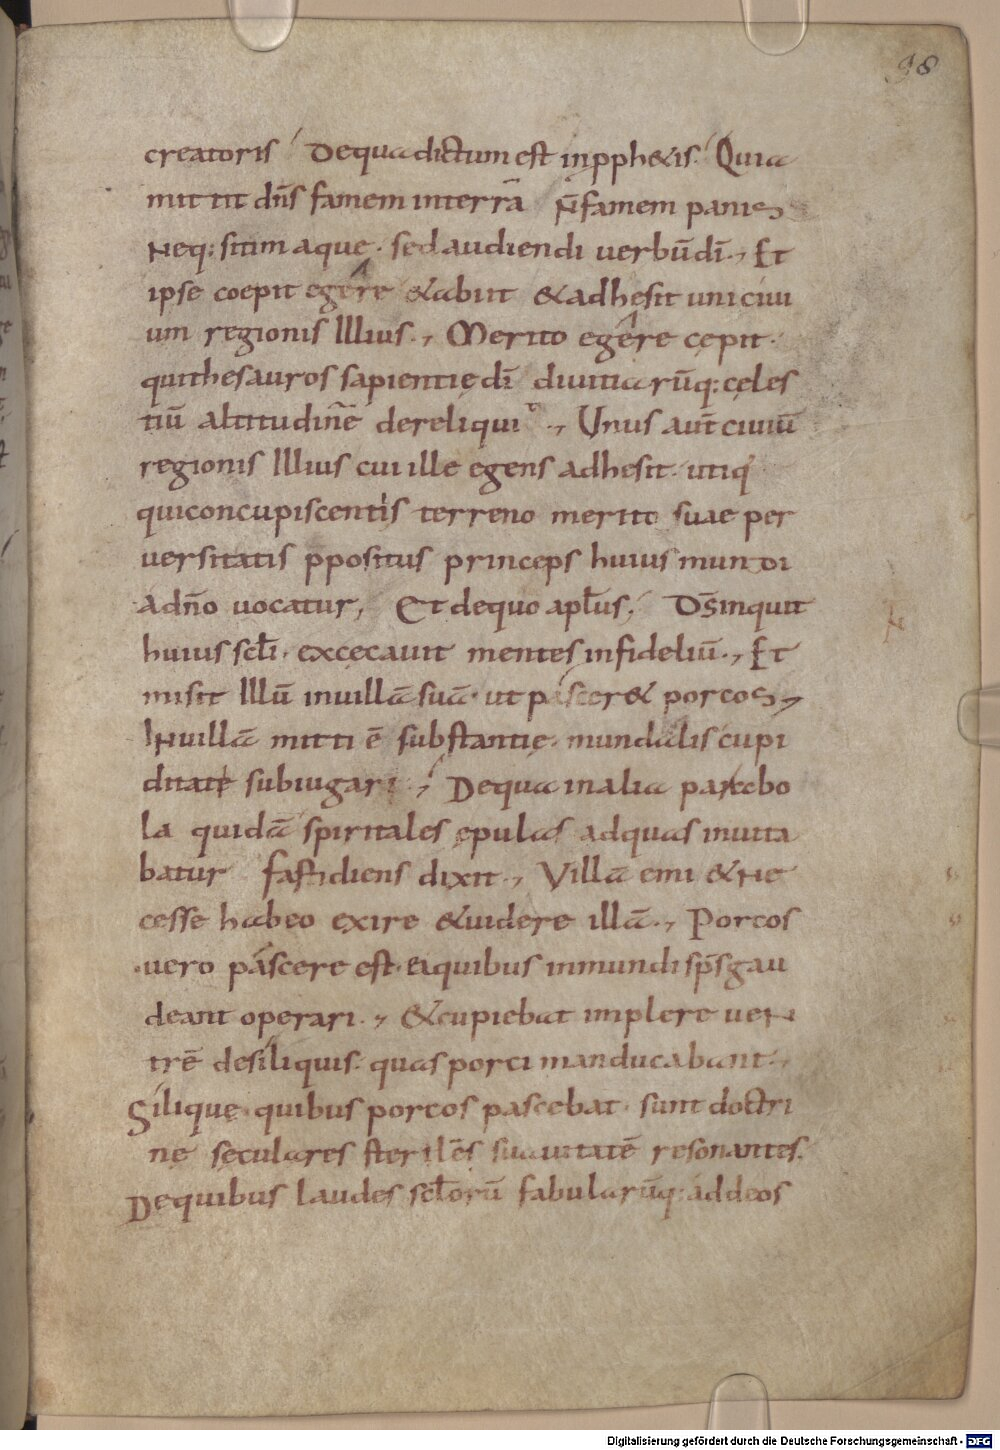 98
creatoris Dequa dictum est in ppħ&is. Quia
mittit dn̄s famem interrā N̄famem panis
Neq: sitim aquę. sed audiendi uerbū dī., Et
ipse coepit egére &abiit &adhesit uni ciui
um regionis Illius., Merito egére cępit.
quithesauros sapientię dī diuitiarūq: cęles
tiū altitudinē dereliquit., Unus aut̄ ciuiū
regionis Illius cui ille egens adhesit. utiq'
qui concupiscentiis terreno merito suae per
uersitatis ppositus princeps huius mundi
adn̄o uocatur, Et dequo apl̄us. Dsinquit
huius scl̄i. excęcauit mentes infideliū., Et
misit Illū inuillā suā. ut pascer& porcos,
Inuillā mitti ē substantię. mundalis cupi
ditate subiugari., Dequa inalia parabo
la quidā spiritales epulas adquas inuita
batur fastidiens dixit., Villā emi &ne
cesse habeo exire &uidere illā., Porcos
uero páscere est. eiquibus inmundi sps̄ gau
deant operari., &cupiebat implere uen
trē desiliquis. quas porci manducabant.,
Silique. quibus porcos pascebat. sunt doctri
nę sęculares steriles suauitatē resonantes.
Dequibus laudes scl̄orū fabularūq: ad deos
Digitalisierung gefördert durch die Deutsche Forschungsgemeinschaft - DFG